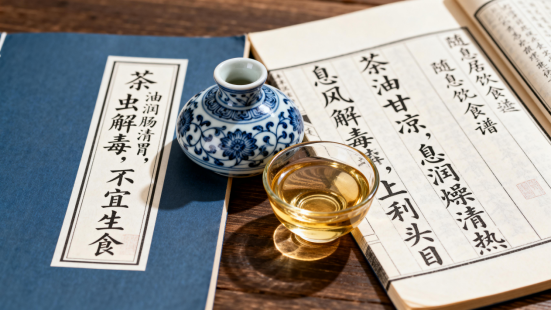 油润肠清胃，
茶虫解毒，不宜生食
随息居饮食
随息饮食谱
茶油甘凉，息润燥清热
息风解毒，上利头目